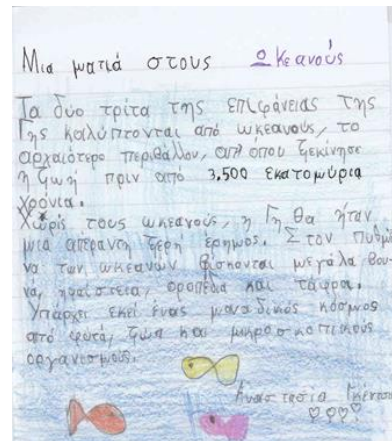 Μια ματιά στους ωκεανούς
Τα δύο τρίτα της επιφάνειας της
Γης καλύπτονται από ωκεανούς, το
αρχαιότερο περιβάλλον, απ' όπου ξεκίνησε
η ζωή πριν από 3.500 εκατομύρια
χρόνια.
Χωρίς τους ωκεανούς, η Γη θα ήταν
μια απέραντη ξερή έρημος. Στον πυθμέ
να των ωκεανών βίσκονται μεγάλα βου-
νά, ηφαίστεια, οροπέδια και τάφροι.
Υπάρχει εκεί ένας μοναδικός κόσμος
από φυτά, ζώα και μικροσκοπικούς
οργανισμούς.
Αναστασία